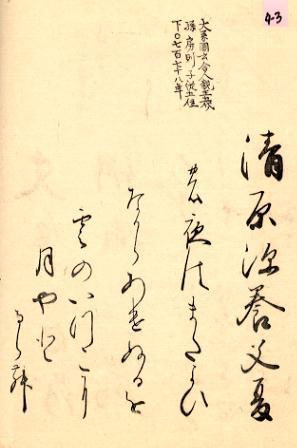 43
大系圖云舎人親王裔
孫房則子従五位
下〇七百七十八年
清原深養父夏
の夜はまたよひ
なからあけぬるを
雲のいつこに
月やと
るらむ